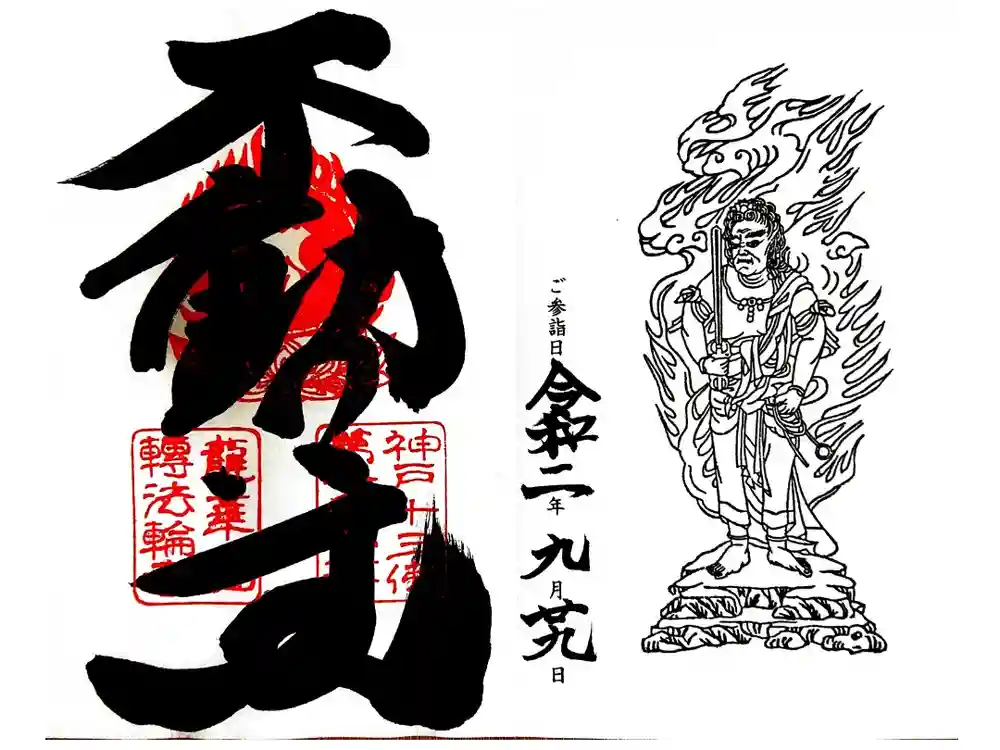 ご参詣日 令和二年 九月廿九日
不動
神戸十三佛
龍華
轉法輪